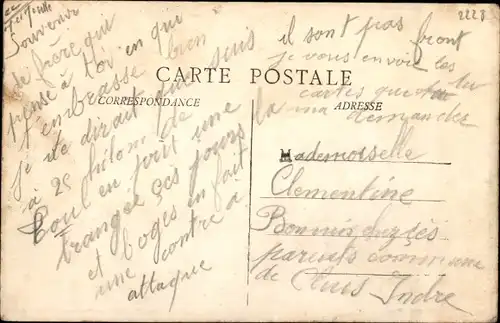 Souvenir
de frère qui
pense à toi en qui
t'embrasse bien
je te dirait que suis
à 25 kilom de
Toul en foit une
trangée ces jours
et Boges en fait
une contre a
attaque
il sont pas front
je vous envoi les
cartes que tu
la ma demandes
2228
CARTE POSTALE
CORRESPONDANCE
ADRESSE
Mademoiselle
Clementine
Bonnin chez ces
parents commune
de Cluis Indre